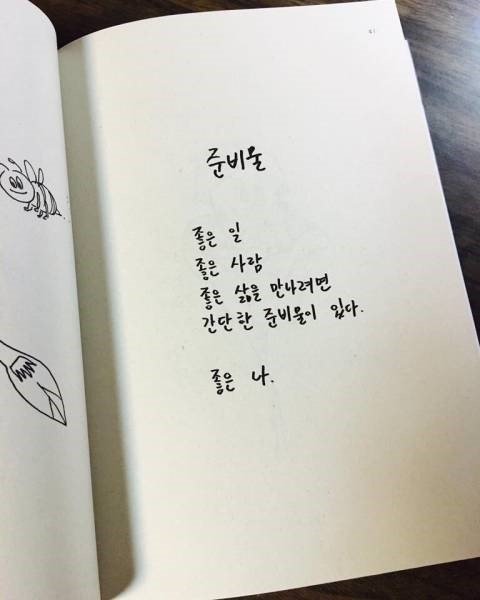 41
준비물
좋은 일
좋은 사람
좋은 삶을 만나려면
간단한 준비물이 있다.
좋은 나.